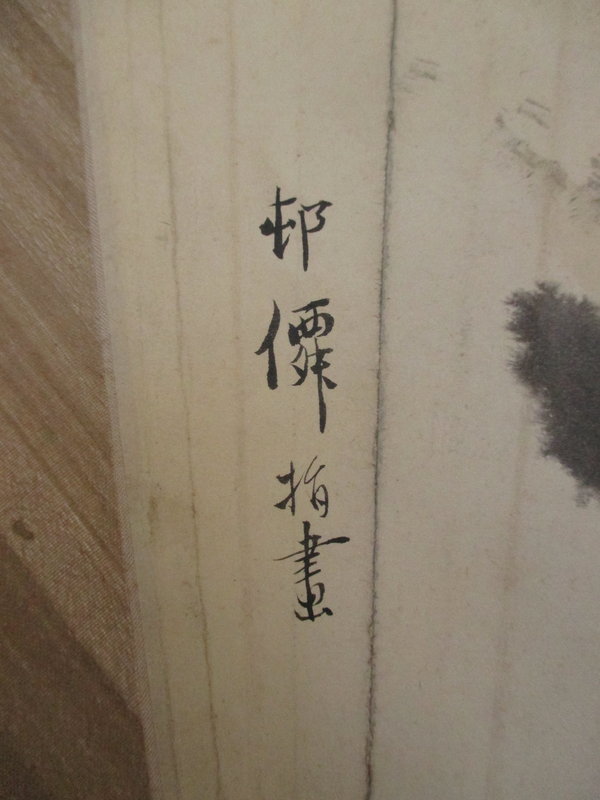 邨僊指畫